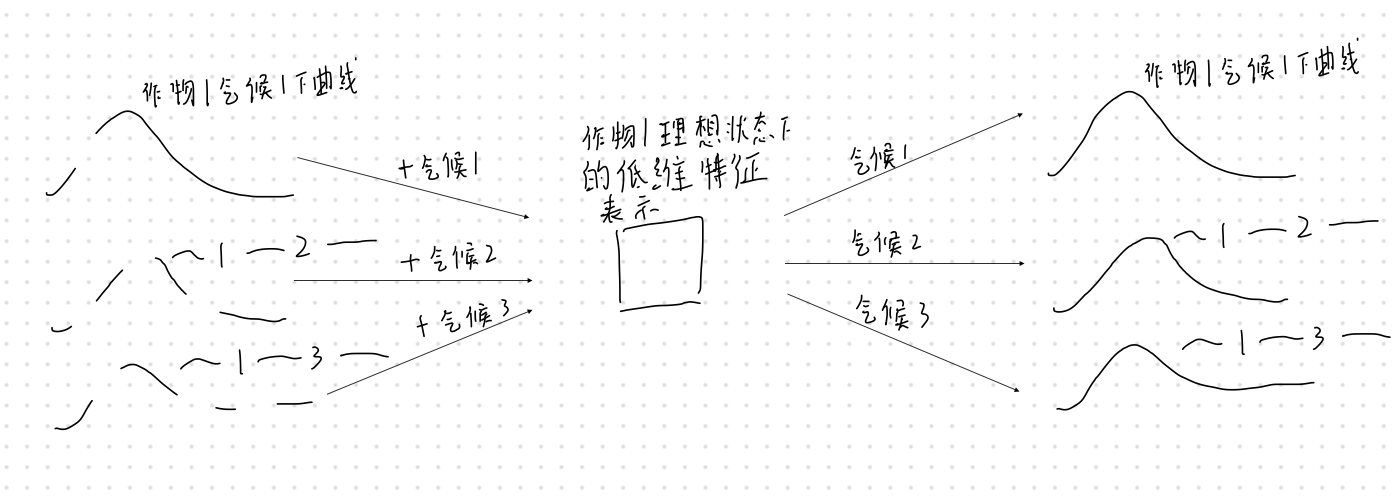 作物1气候1下曲线
+气候1
~1—2—
+气候2
~1—3—
+气候3
作物1理想状态下
的低维特征
表示
气候1
气候2
气候3
作物1气候1下曲线
~1—2—
~1—3—